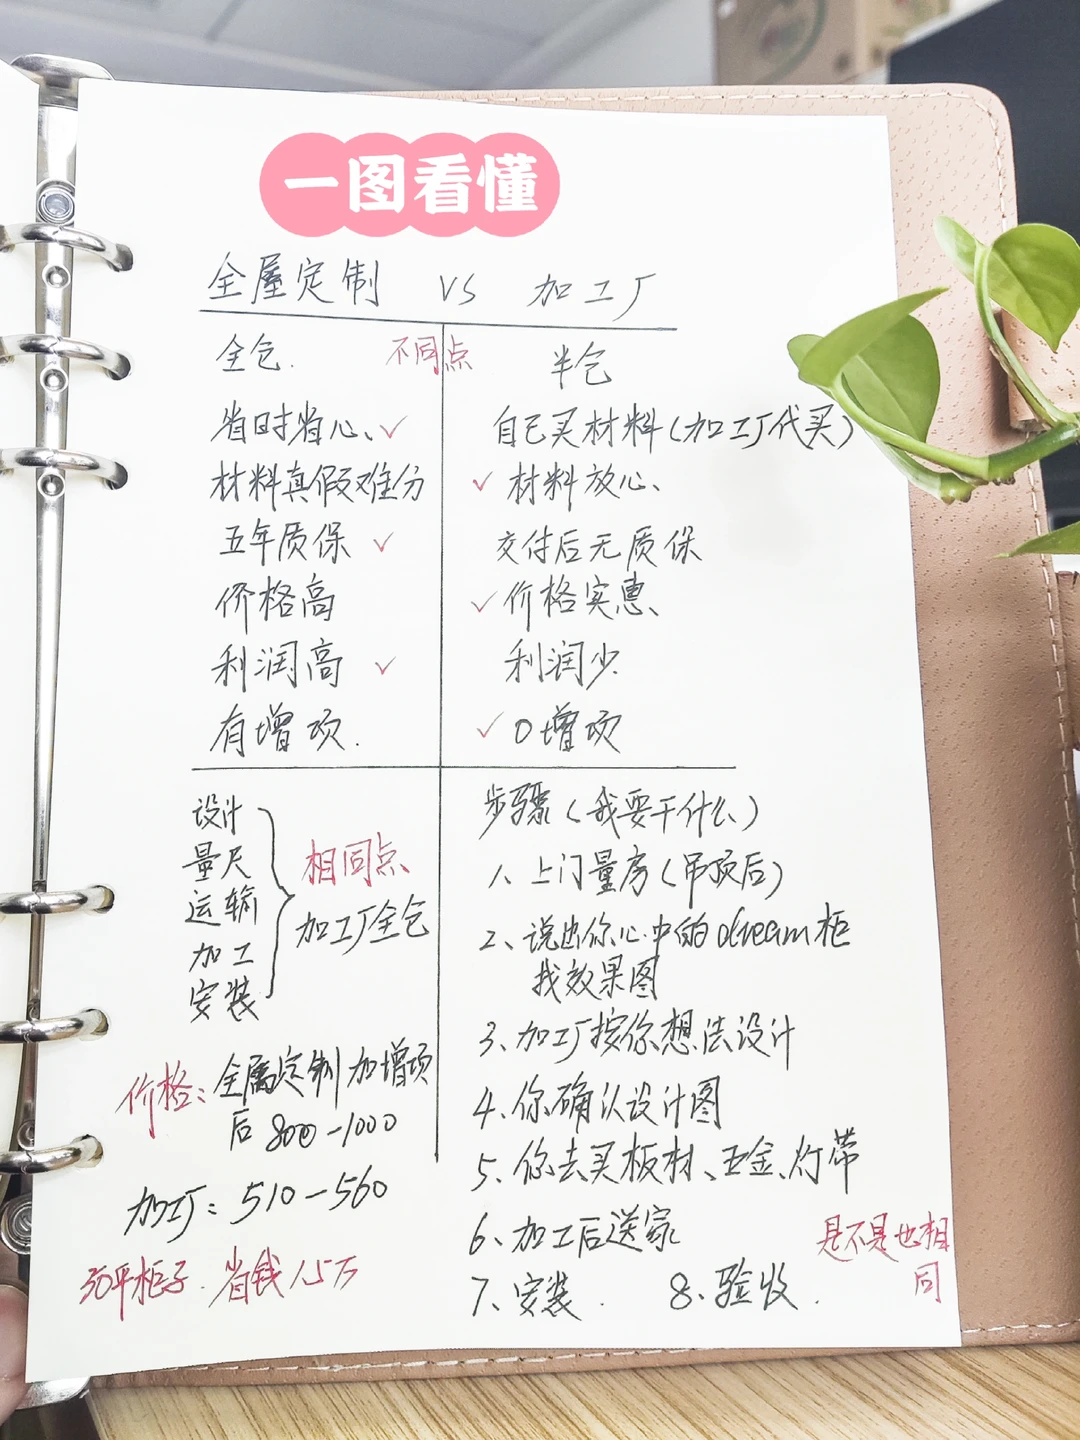 一图看懂
全屋定制 VS 加工厂
全包. 不同点 半包
省时省心、✓ 自己买材料(加工厂代买)
材料真假难分 ✓ 材料放心、
五年质保 ✓ 交付后无质保
价格高 ✓ 价格实惠、
利润高 ✓ 利润少.
有增项. ✓ 0增项
设计
量尺
运输
加工
安装
相同点
加工厂全包
价格: 全屋定制加增项
后 800-1000
加工厂: 510-560
30平柜子. 省钱1.5万
步骤(我要干什么)
1、上门量房(吊顶后)
2、说出你心中的dream柜
找效果图
3、加工厂按你想法设计
4、你确认设计图
5、你去买板材、五金、灯带
6、加工后送家
7、安装. 8、验收.
是不是也相
同